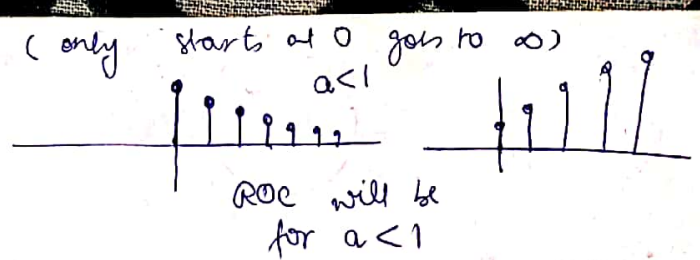 ( only starts at 0 goes to ∞)
a<1
ROC will be
for a<1